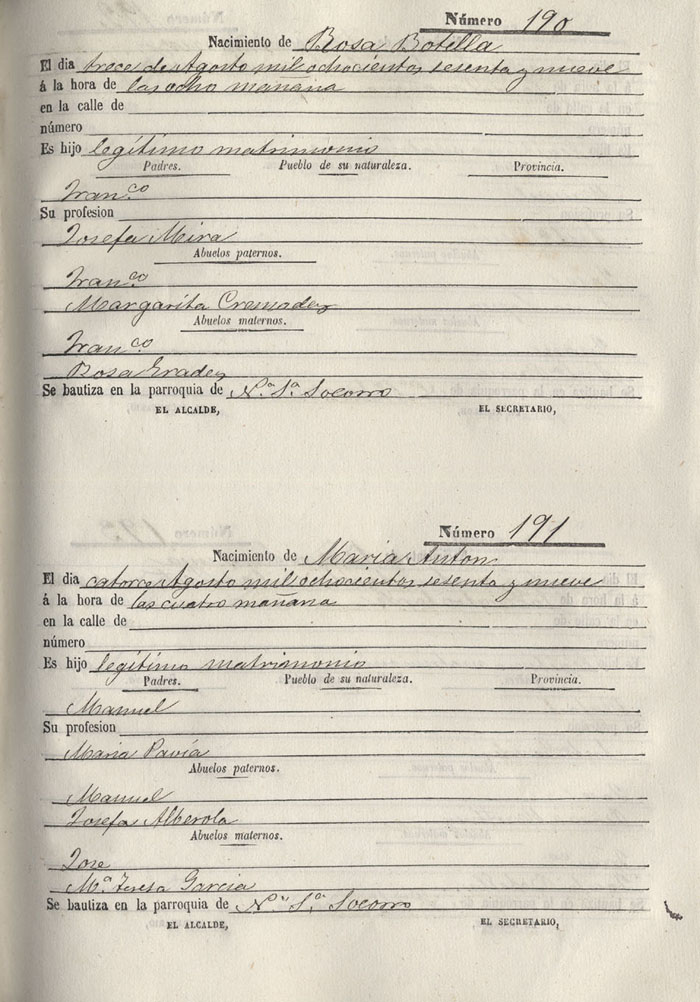 Número 190
Nacimiento de Rosa Botella
El dia trece de Agosto mil ochocientos sesenta y nueve
á la hora de las ocho mañana
en la calle de
número
Es hijo legítimo matrimonio
Padres. Pueblo de su naturaleza. Provincia.
Franco
Su profesion
Josefa Mira
Abuelos paternos.
Franco
Margarita Cremades
Abuelos maternos.
Franco
Rosa
Se bautiza en la parroquia de Na. Sa. Socorro
EL ALCALDE, EL SECRETARIO,
Número 191
Nacimiento de Maria Anton
El dia catorce Agosto mil ochocientos sesenta y nueve
á la hora de las cuatro mañana
en la calle de
número
Es hijo legítimo matrimonio
Padres. Pueblo de su naturaleza. Provincia.
Manuel
Su profesion
Maria Pavía
Abuelos paternos.
Manuel
Josefa Alberola
Abuelos maternos.
Jose
Ma. Teresa Garcia
Se bautiza en la parroquia de Na. Sa. Socorro
EL ALCALDE, EL SECRETARIO,